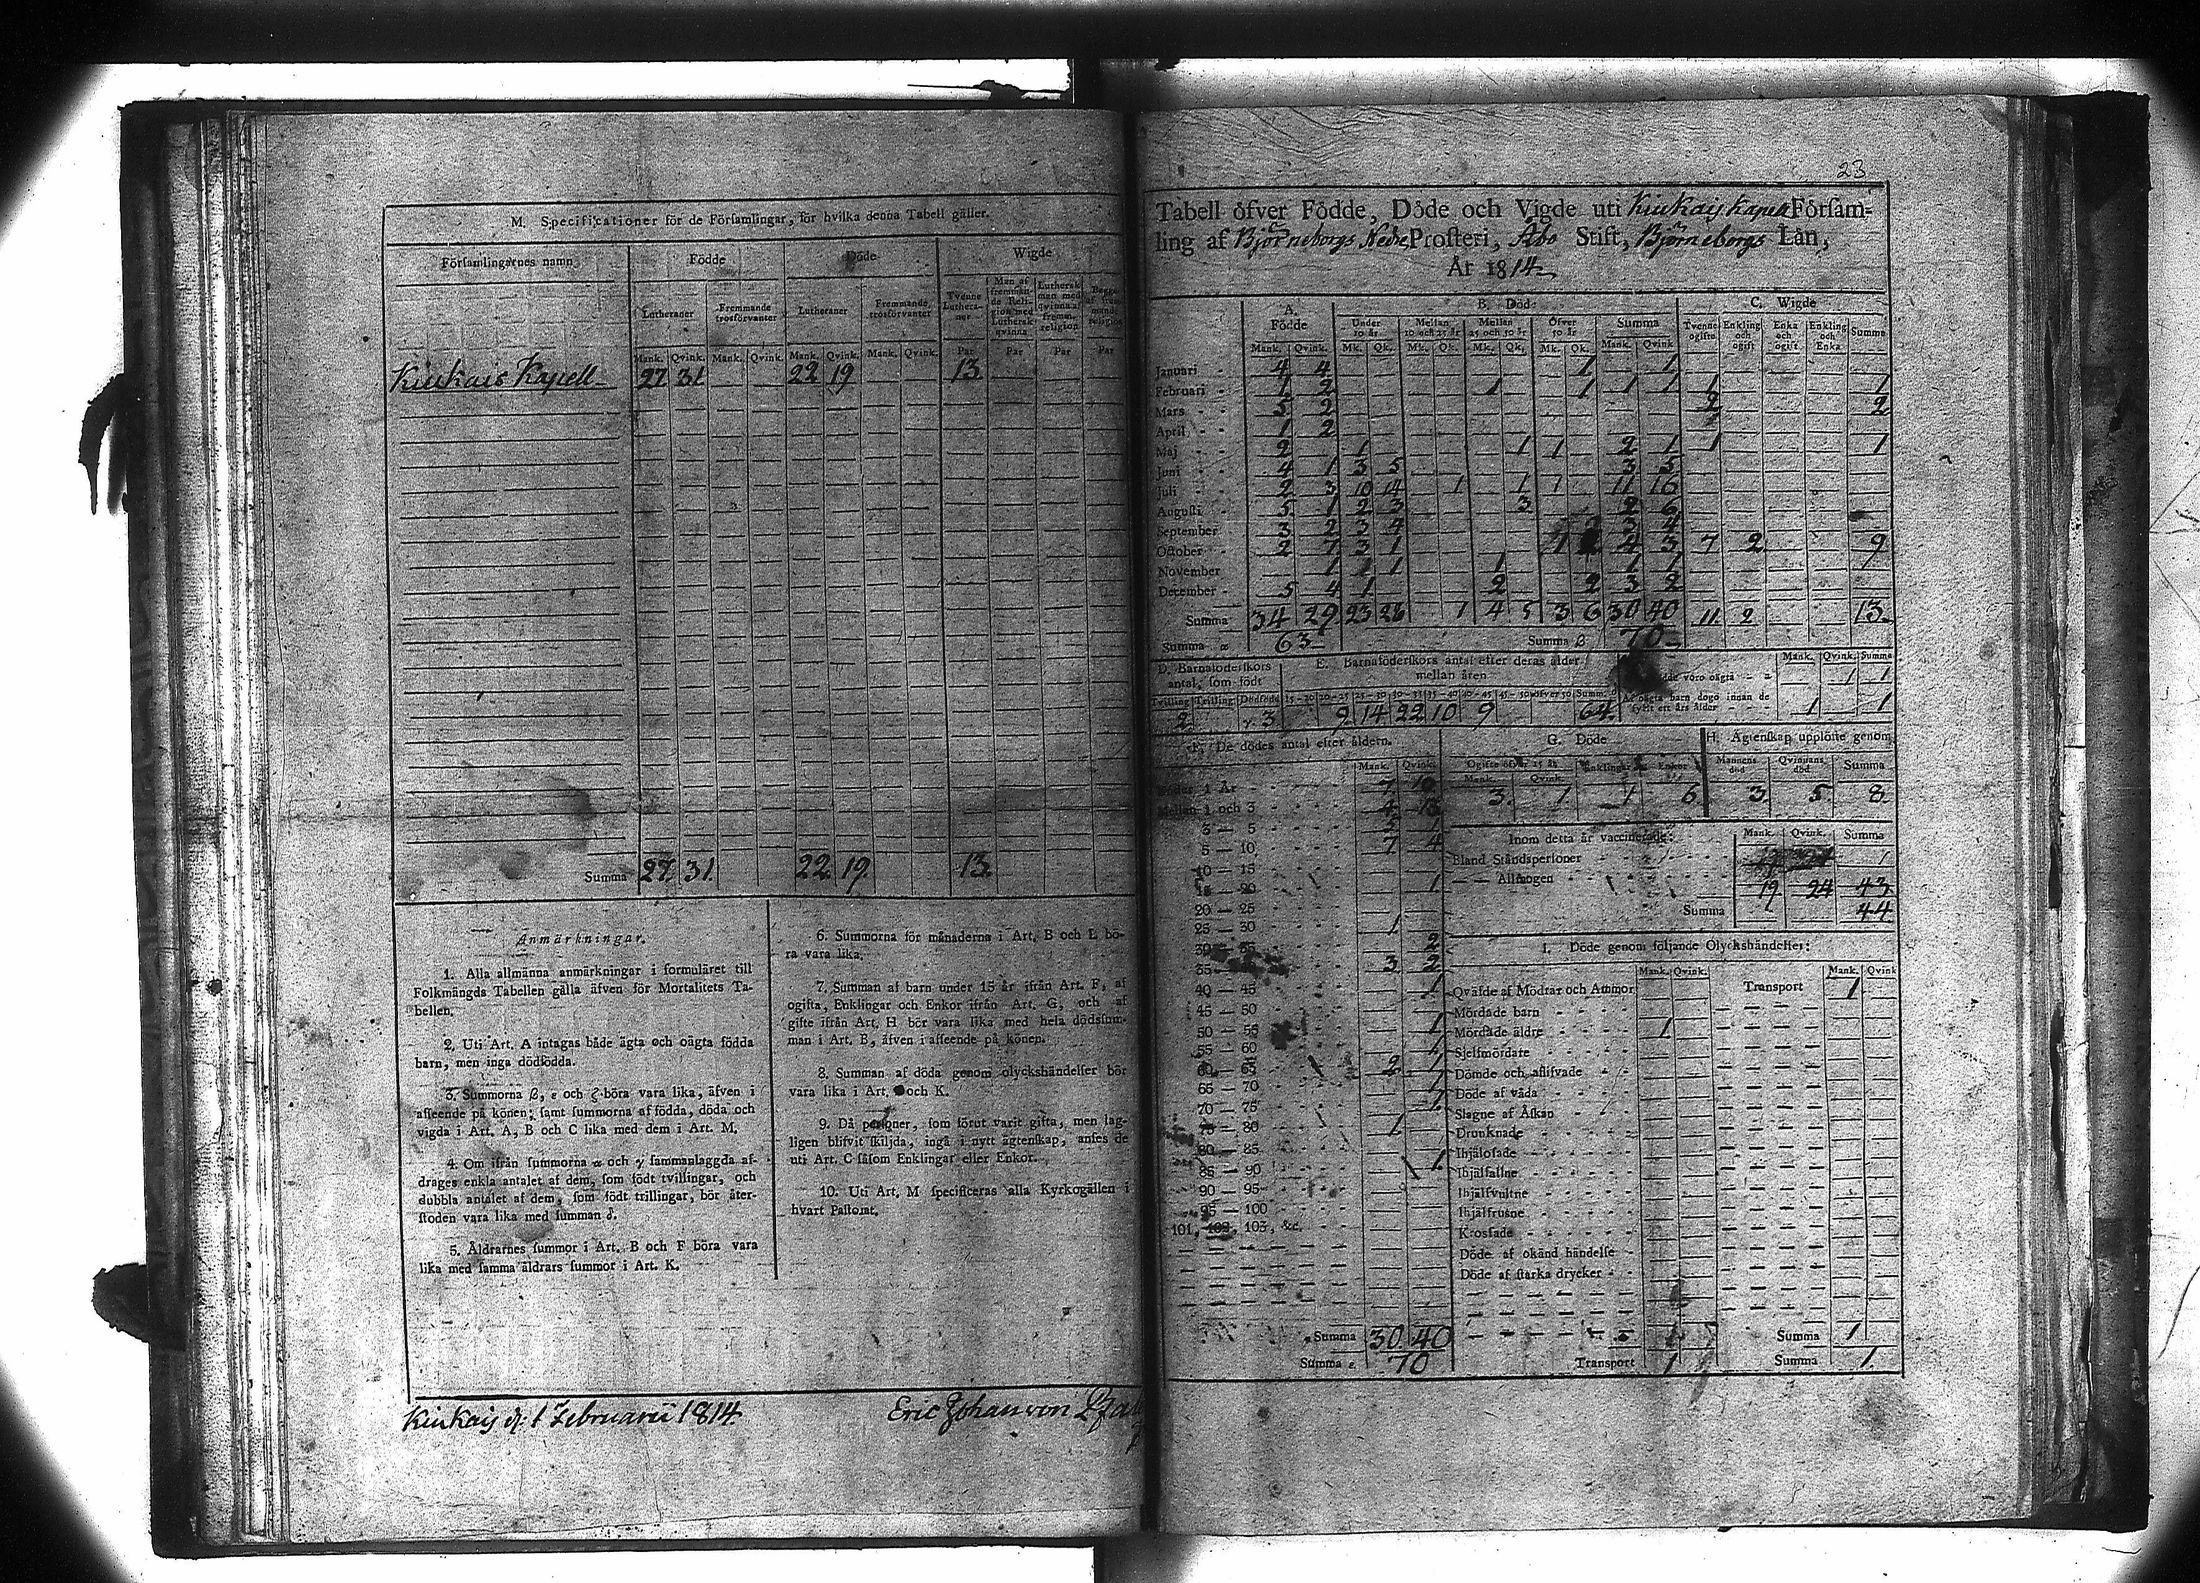 M. Specificationer för de Församlingar, för hvilka denna Tabell gäller.
Församlingarnes namn
Födde
Döde
Wigde
Lutheraner
Fremmande trosförvanter
Lutheraner
Fremmande trosförvanter
Tvenne Lutheraner
Man af fremmande Religion med Luthersk qvinna
Luthersk man med qvinna af fremm. religion
Mank. Qvink. Mank. Qvink. Mank. Qvink. Mank. Qvink. Par Par Par Par
Kiukais Kapell 27 31 22 19 13
Summa 27. 31. 22. 19. 13.
Anmärkningar.
1. Alla allmänna anmärkningar i formuläret till
Folkmängds Tabellen gälla äfven för Mortalitets Ta-
bellen.
2. Uti Art. A intagas både ägta och oägta födda
barn, men inga dödfödda.
3. Summorna β, ε och ζ böra vara lika, äfven i
afseende på könen; samt summorna af födda, döda och
vigda i Art. A, B och C lika med dem i Art. M.
4. Om ifrån summorna α och γ sammanlaggda af-
drages enkla antalet af dem, som födt tvillingar, och
dubbla antalet af dem, som födt trillingar, bör åter-
stoden vara lika med summan δ.
5. Åldrarnes summor i Art. B och F böra vara
lika med samma åldrars summor i Art. K.
6. Summorna för månaderna i Art. B och L bö-
ra vara lika.
7. Summan af barn under 15 år ifrån Art. F, af
ogifta, Enklingar och Enkor ifrån Art. G, och af
gifte ifrån Art. H bör vara lika med hela dödssum-
man i Art. B, äfven i afseende på könen.
8. Summan af döda genom olyckshändelser bör
vara lika i Art. och K.
9. Då personer, som förut varit gifta, men lag-
ligen blifvit skiljda, ingå i nytt ägtenskap, anses de
uti Art. C såsom Enklingar eller Enkor.
10. Uti Art. M specificeras alla Kyrkogällen i
hvart Pastorat.
Kiukais d. 1 Februarii 1814.
Eric Johan von
23
Tabell öfver Födde, Döde och Vigde uti Kiukais Kapell Försam-
ling af Björneborgs Nedre Prosteri, Åbo Stift, Björneborgs Län,
År 1814
A. Födde
B. Död
C. Wigde
Under 10 år
Mellan 10 och 25 år
Mellan 25 och 50 år
Öfver 50 år
Summa
Tvenne ogifte
Enkling och ogift
Enka och ogift
Enkling och Enka
Summa
Mank. Qvink. Mk. Qk. Mk. Qk. Mk. Qk. Mk. Qk. Mank. Qvink
Januari 4 4 1 1
Februari 1 2 1 1 1 1 1 1
Mars 2 2 2
April 1 2
Maj 2 1 1 1 2 1 1 1
Juni 4 1 3 5 3 5
Juli 2 3 10 14 1 1 1 11 16
Augusti 5 1 2 3 3 2 6
September 3 2 3 4 3 4
October 2 7 3 1 4 3 7 2 9
November 1 1 1 1 1
December 5 4 1 2 2 3 2
Summa 34 29 23 26 1 4 5 3 6 30 40 11. 2 13.
Summa α 63
Summa β 70
D. Barnaföderskors antal, som födt
E. Barnaföderskors antal efter deras ålder
mellan åren
Mank. Qvink. Summa
Tvilling Trilling Dödfödde 15-20 20-25 25-30 30-35 35-40 40-45 45-50 öfver 50 Summ.
2 γ 3 9 14 22 10 9 64.
voro oägta 1 1
Af oägta barn dogo innan de
fyllt ett års ålder 1 1
F. De dödes antal efter åldern.
G. Döde
H. Ägtenskap upplöste genom
Mank. Qvink.
Ogifte öfver 15 år Enklingar Enkor
Mannens död Qvinnans död Summa
Mank. Qvink.
3. 1 1 6 3 5 8
1 År 7
Mellan 1 och 3
3 — 5
5 — 10 7 4
10 — 15
15 — 20 1
20 — 25
25 — 30 1
30 — 35 2
35 3 2
40 — 45 1
45 — 50
50 — 55 1
55 — 60 1
60 — 65 2 1
65 — 70
70 — 75 1
75 — 80 1
80 — 85
85 — 90 1
90 — 95
95 — 100
101, 102, 103, &c.
Summa 30 40
Summa ε 70
Inom detta år vaccinerade: Mank. Qvink. Summa
Bland Ståndspersoner 1
— — Allmogen 19 24 43
Summa 44
I. Döde genom följande Olyckshändelser:
Mank. Qvink. Mank. Qvink
Qväfde af Mödrar och Ammor
Transport 1
Mördade barn
Mördade äldre 1
Sjelfmördare
Dömde och aflifvade
Döde af våda
Slagne af Åskan
Drunknade
Ihjälosade
Ihjälfallne
Ihjälsvultne
Ihjälfrusne
Krossade
Döde af okänd händelse
Döde af starka drycker
Summa 1
Transport 1
Summa 1